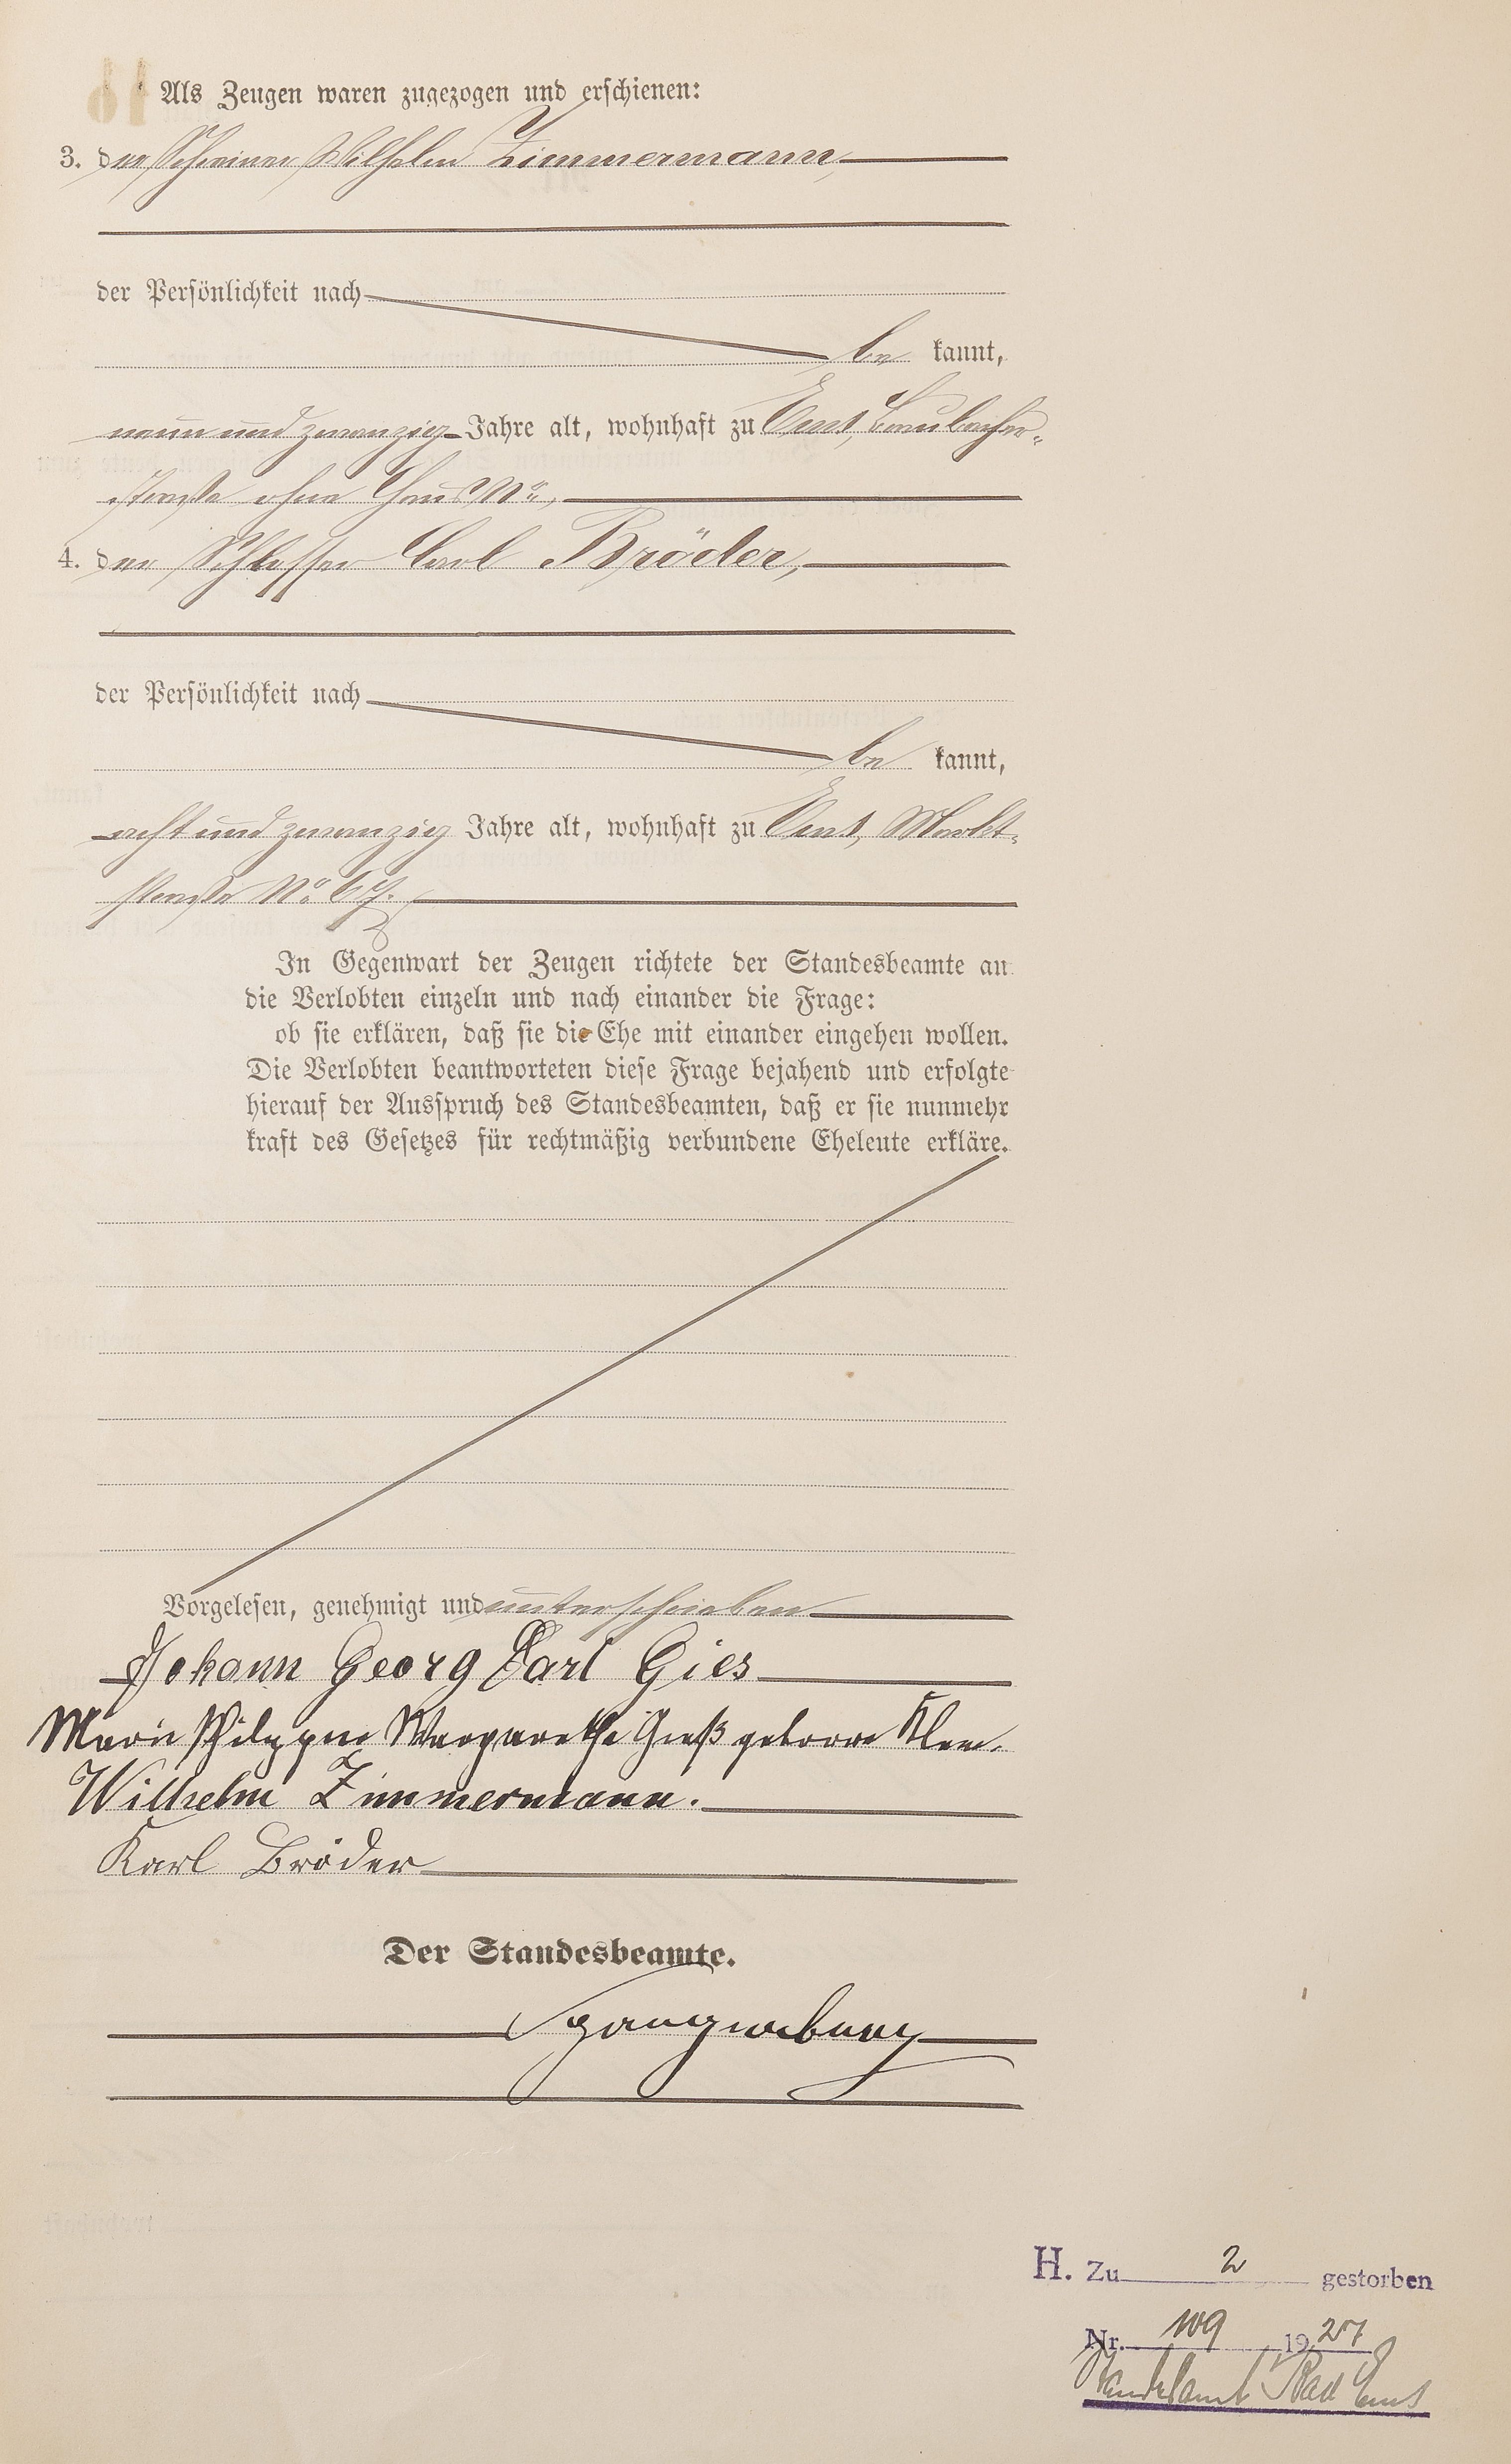 Als Zeugen waren zugezogen und erschienen:
3. der Schreiner Wilhelm Zimmermann,
der Persönlichkeit nach
be kannt,
neun und zwanzig Jahre alt, wohnhaft zu Ems,
straße ohne Haus No,
4. der Schlosser Carl Bröder,
der Persönlichkeit nach
be kannt,
acht und zwanzig Jahre alt, wohnhaft zu Ems, Markt-
straße No 67.
In Gegenwart der Zeugen richtete der Standesbeamte an
die Verlobten einzeln und nach einander die Frage:
ob sie erklären, daß sie die Ehe mit einander eingehen wollen.
Die Verlobten beantworteten diese Frage bejahend und erfolgte
hierauf der Ausspruch des Standesbeamten, daß er sie nunmehr
kraft des Gesetzes für rechtmäßig verbundene Eheleute erkläre.
Vorgelesen, genehmigt und unterschrieben
Johann Georg Carl Gies
Marie Philippine Margarethe Gieß geborne
Wilhelm Zimmermann.
Karl Bröder
Der Standesbeamte.
Spangenberg
H. Zu 2 gestorben
Nr. 109 1927
Standesamt Bad Ems